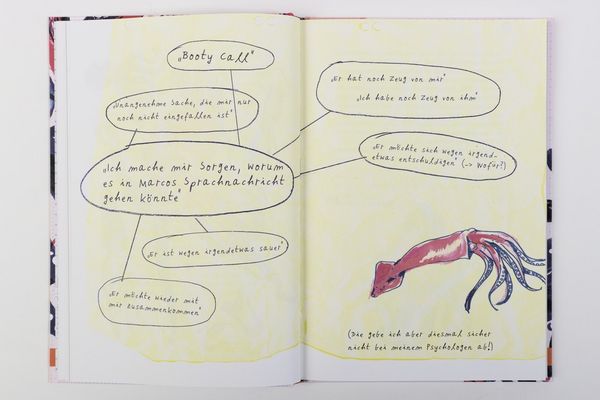 „Booty Call"
„Unangenehme Sache, die mir nur
noch nicht eingefallen ist"
„Ich mache mir Sorgen, worum
es in Marcos Sprachnachricht
gehen könnte"
„Er ist wegen irgendetwas sauer"
„Er möchte wieder mit
mir zusammenkommen"
„Er hat noch Zeug von mir"
„Ich habe noch Zeug von ihm"
„Er möchte sich wegen irgend-
etwas entschuldigen" (-> Wofür?)
(Die gebe ich aber diesmal sicher
nicht bei meinem Psychologen ab!)